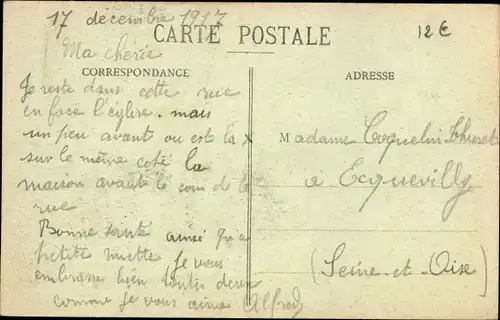 17 décembre 1917
CARTE POSTALE
12€
Ma chérie
CORRESPONDANCE
ADRESSE
Je reste dans cette rue
en face l'église. mais
un peu avant ou est la x
sur le même coté la
maison avant le coin de la
rue
Bonne santé ainsi qu'a
petite miette Je vous
embrasse bien toutes deux
comme Je vous aime Alfred
Madame Coquelin
a Ecquevilly
(Seine-et-Oise)